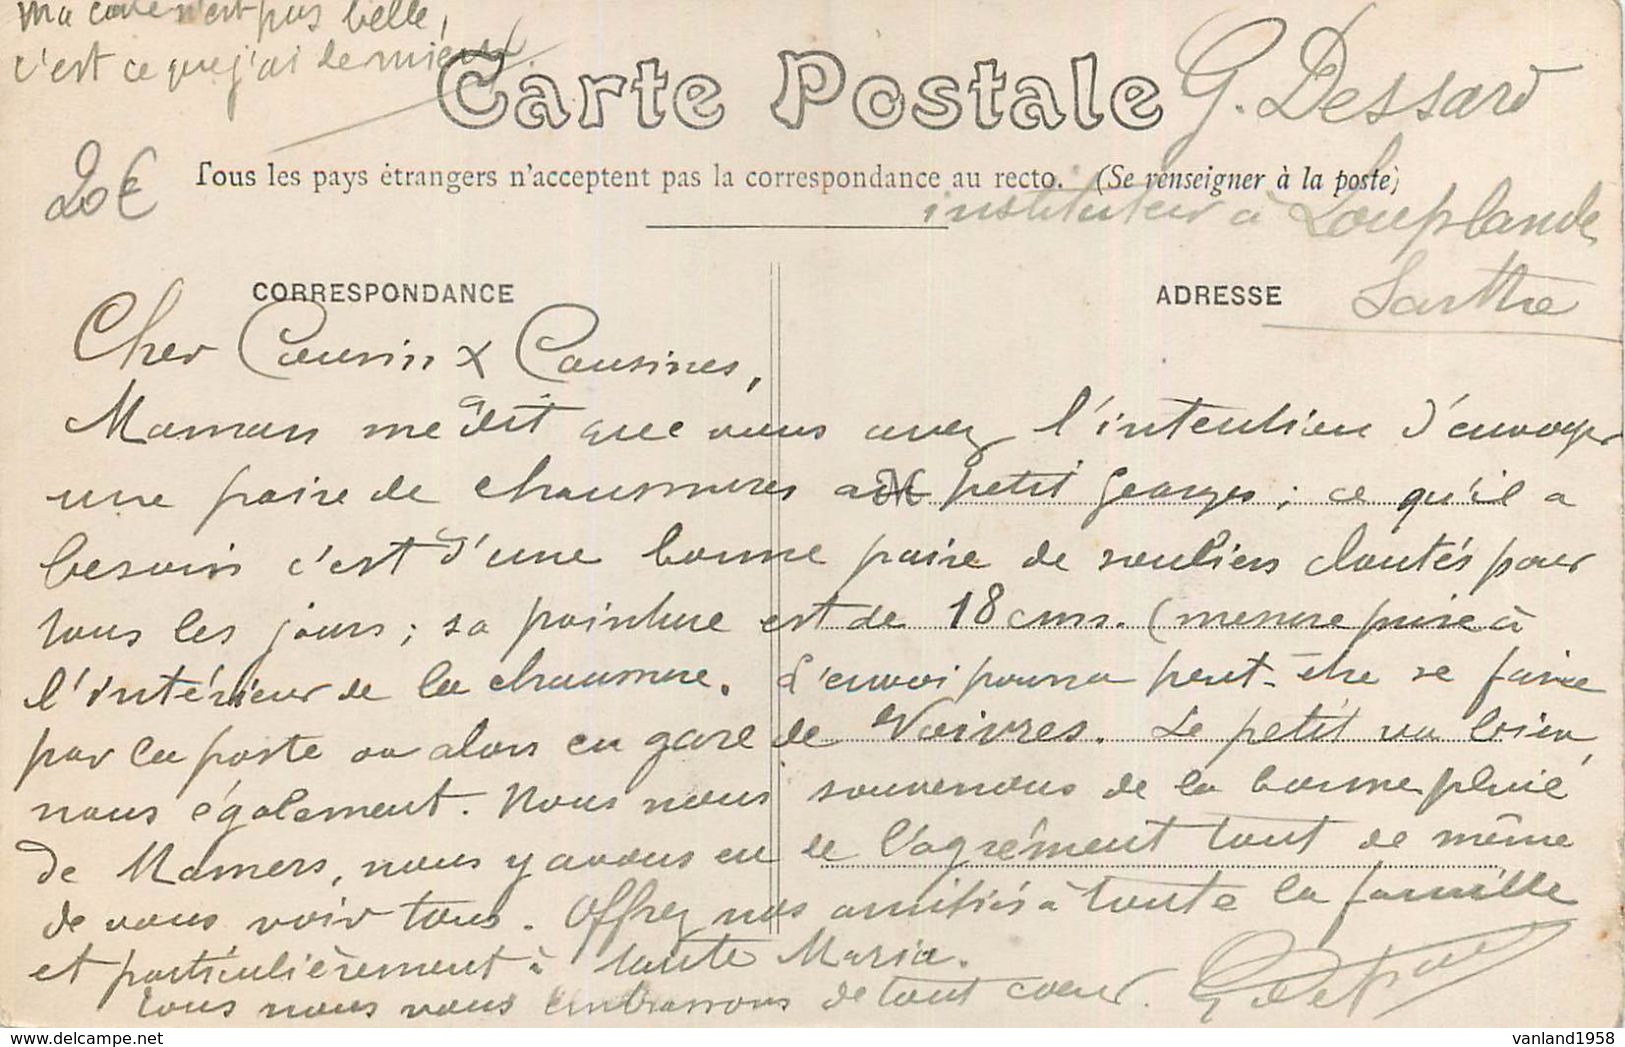 Ma carte n'est pas belle,
c'est ce que j'ai de mieux.
Carte Postale
G. Dessard
20€
Tous les pays étrangers n'acceptent pas la correspondance au recto. (Se renseigner à la poste)
instituteur à Louplande
Sarthe
CORRESPONDANCE
ADRESSE
Cher Cousin & Cousines,
Maman me dit que vous avez l'intention d'envoyer
une paire de chaussures au petit Georges ; ce qu'il a
besoin c'est d'une bonne paire de souliers cloutés pour
tous les jours ; sa pointure est de 18 cms. (mesure prise à
l'intérieur de la chaussure. L'envoi pourra peut-être se faire
par la poste ou alors en gare de Voivres. Le petit va bien,
nous également. Nous nous souvenons de la bonne pluie
de Mamers, nous y avons eu de l'agrément tout de même
de vous voir tous. Offrez nos amitiés à toute la famille
et particulièrement à tante Maria.
Tous nous vous embrassons de tout coeur.
vanland1958